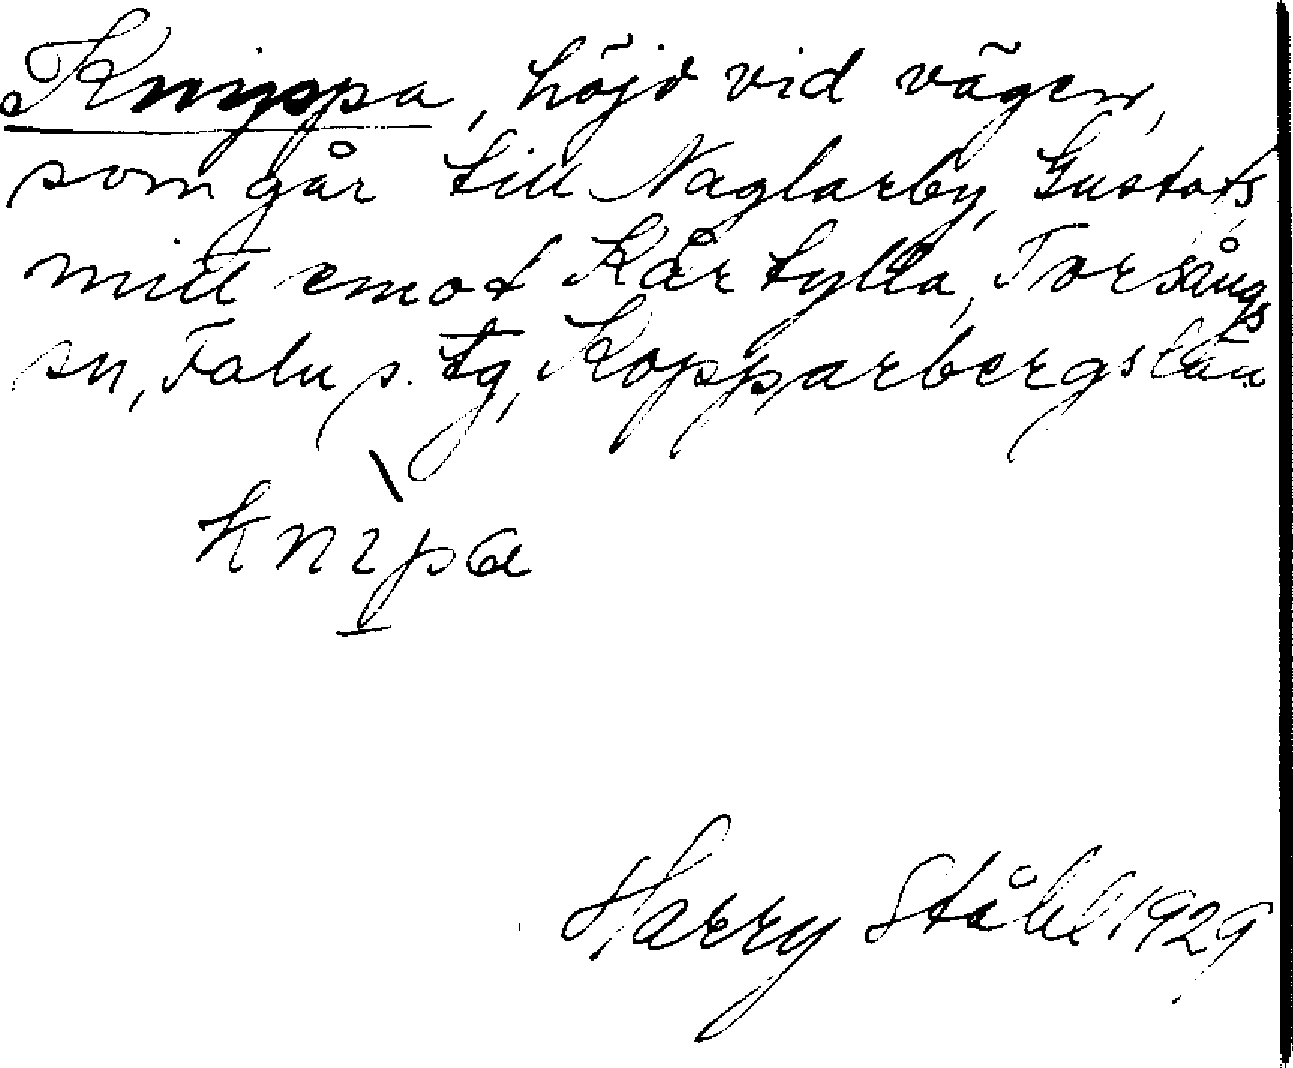 Knippa, höjd vid vägen,
som går till Naglarby, Gustafs,
mitt emot Kårtylla, Torsångs
sn, Falu s. tg, Kopparbergs län
knìpa
Harry Ståhl 1929